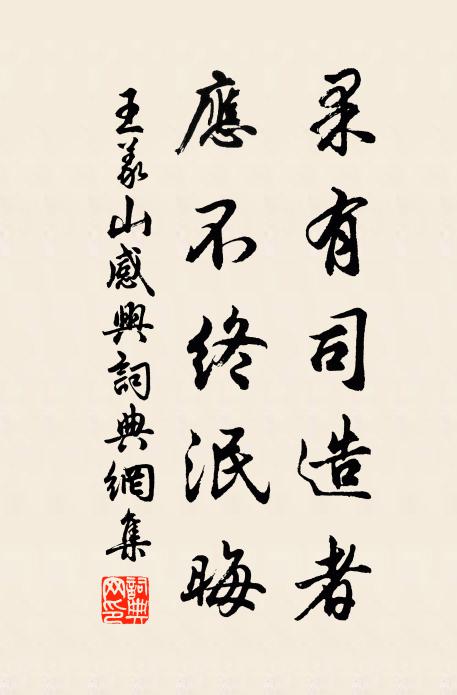 果有司造者
應不終泯晦
王義山感興詞典網集
詞典
网印